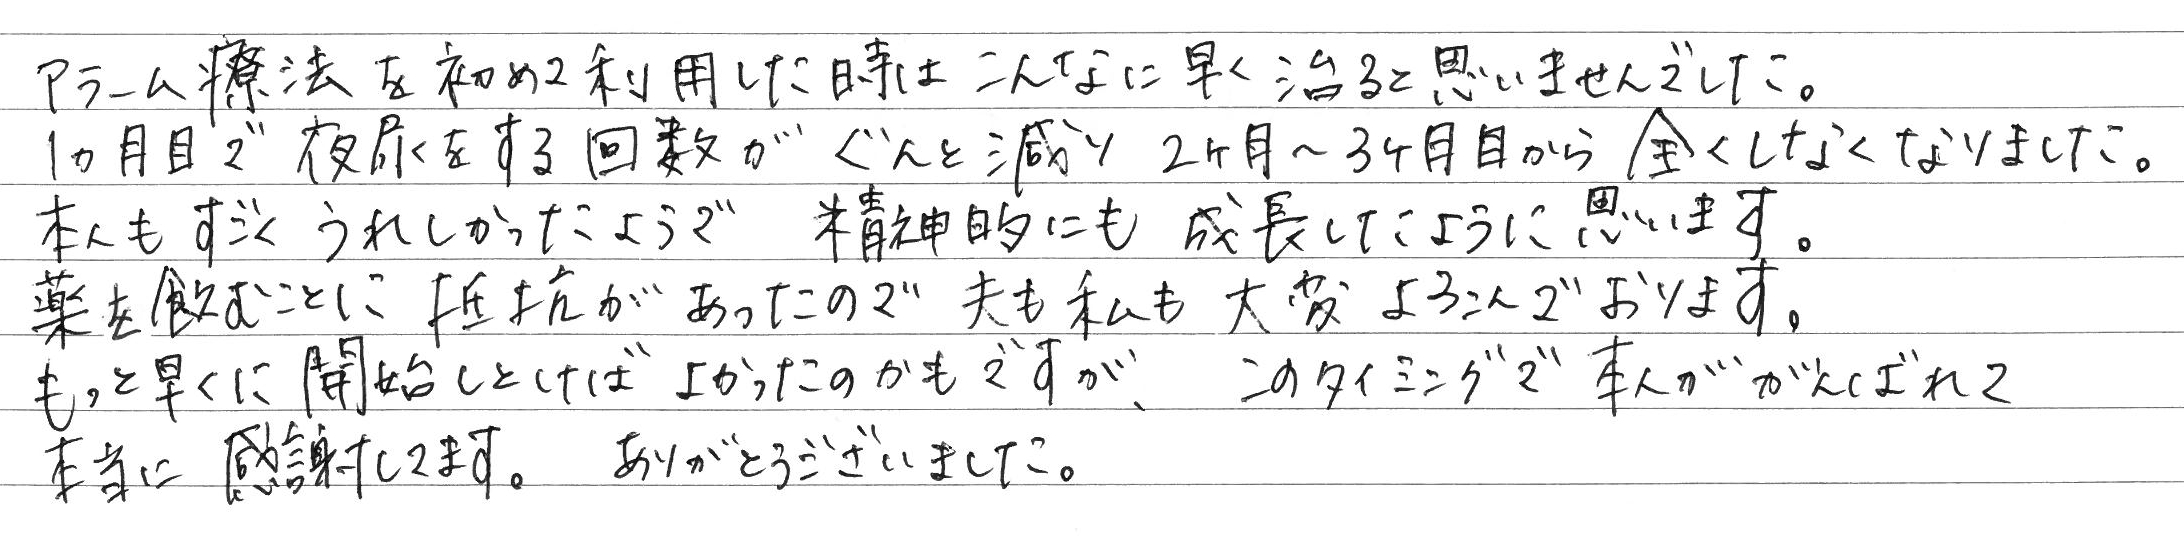 アラーム療法を初めて利用した時はこんなに早く治ると思いませんでした。
1カ月目で夜尿をする回数がぐんと減り2ケ月～3ケ月目から全くしなくなりました。
本人もすごくうれしかったようで 精神的にも成長したように思います。
薬を飲むことに抵抗があったので夫も私も大変よろこんでおります。
もっと早くに開始しとけばよかったのかもですが、このタイミングで本人ががんばれて
本当に感謝してます。 ありがとうございました。